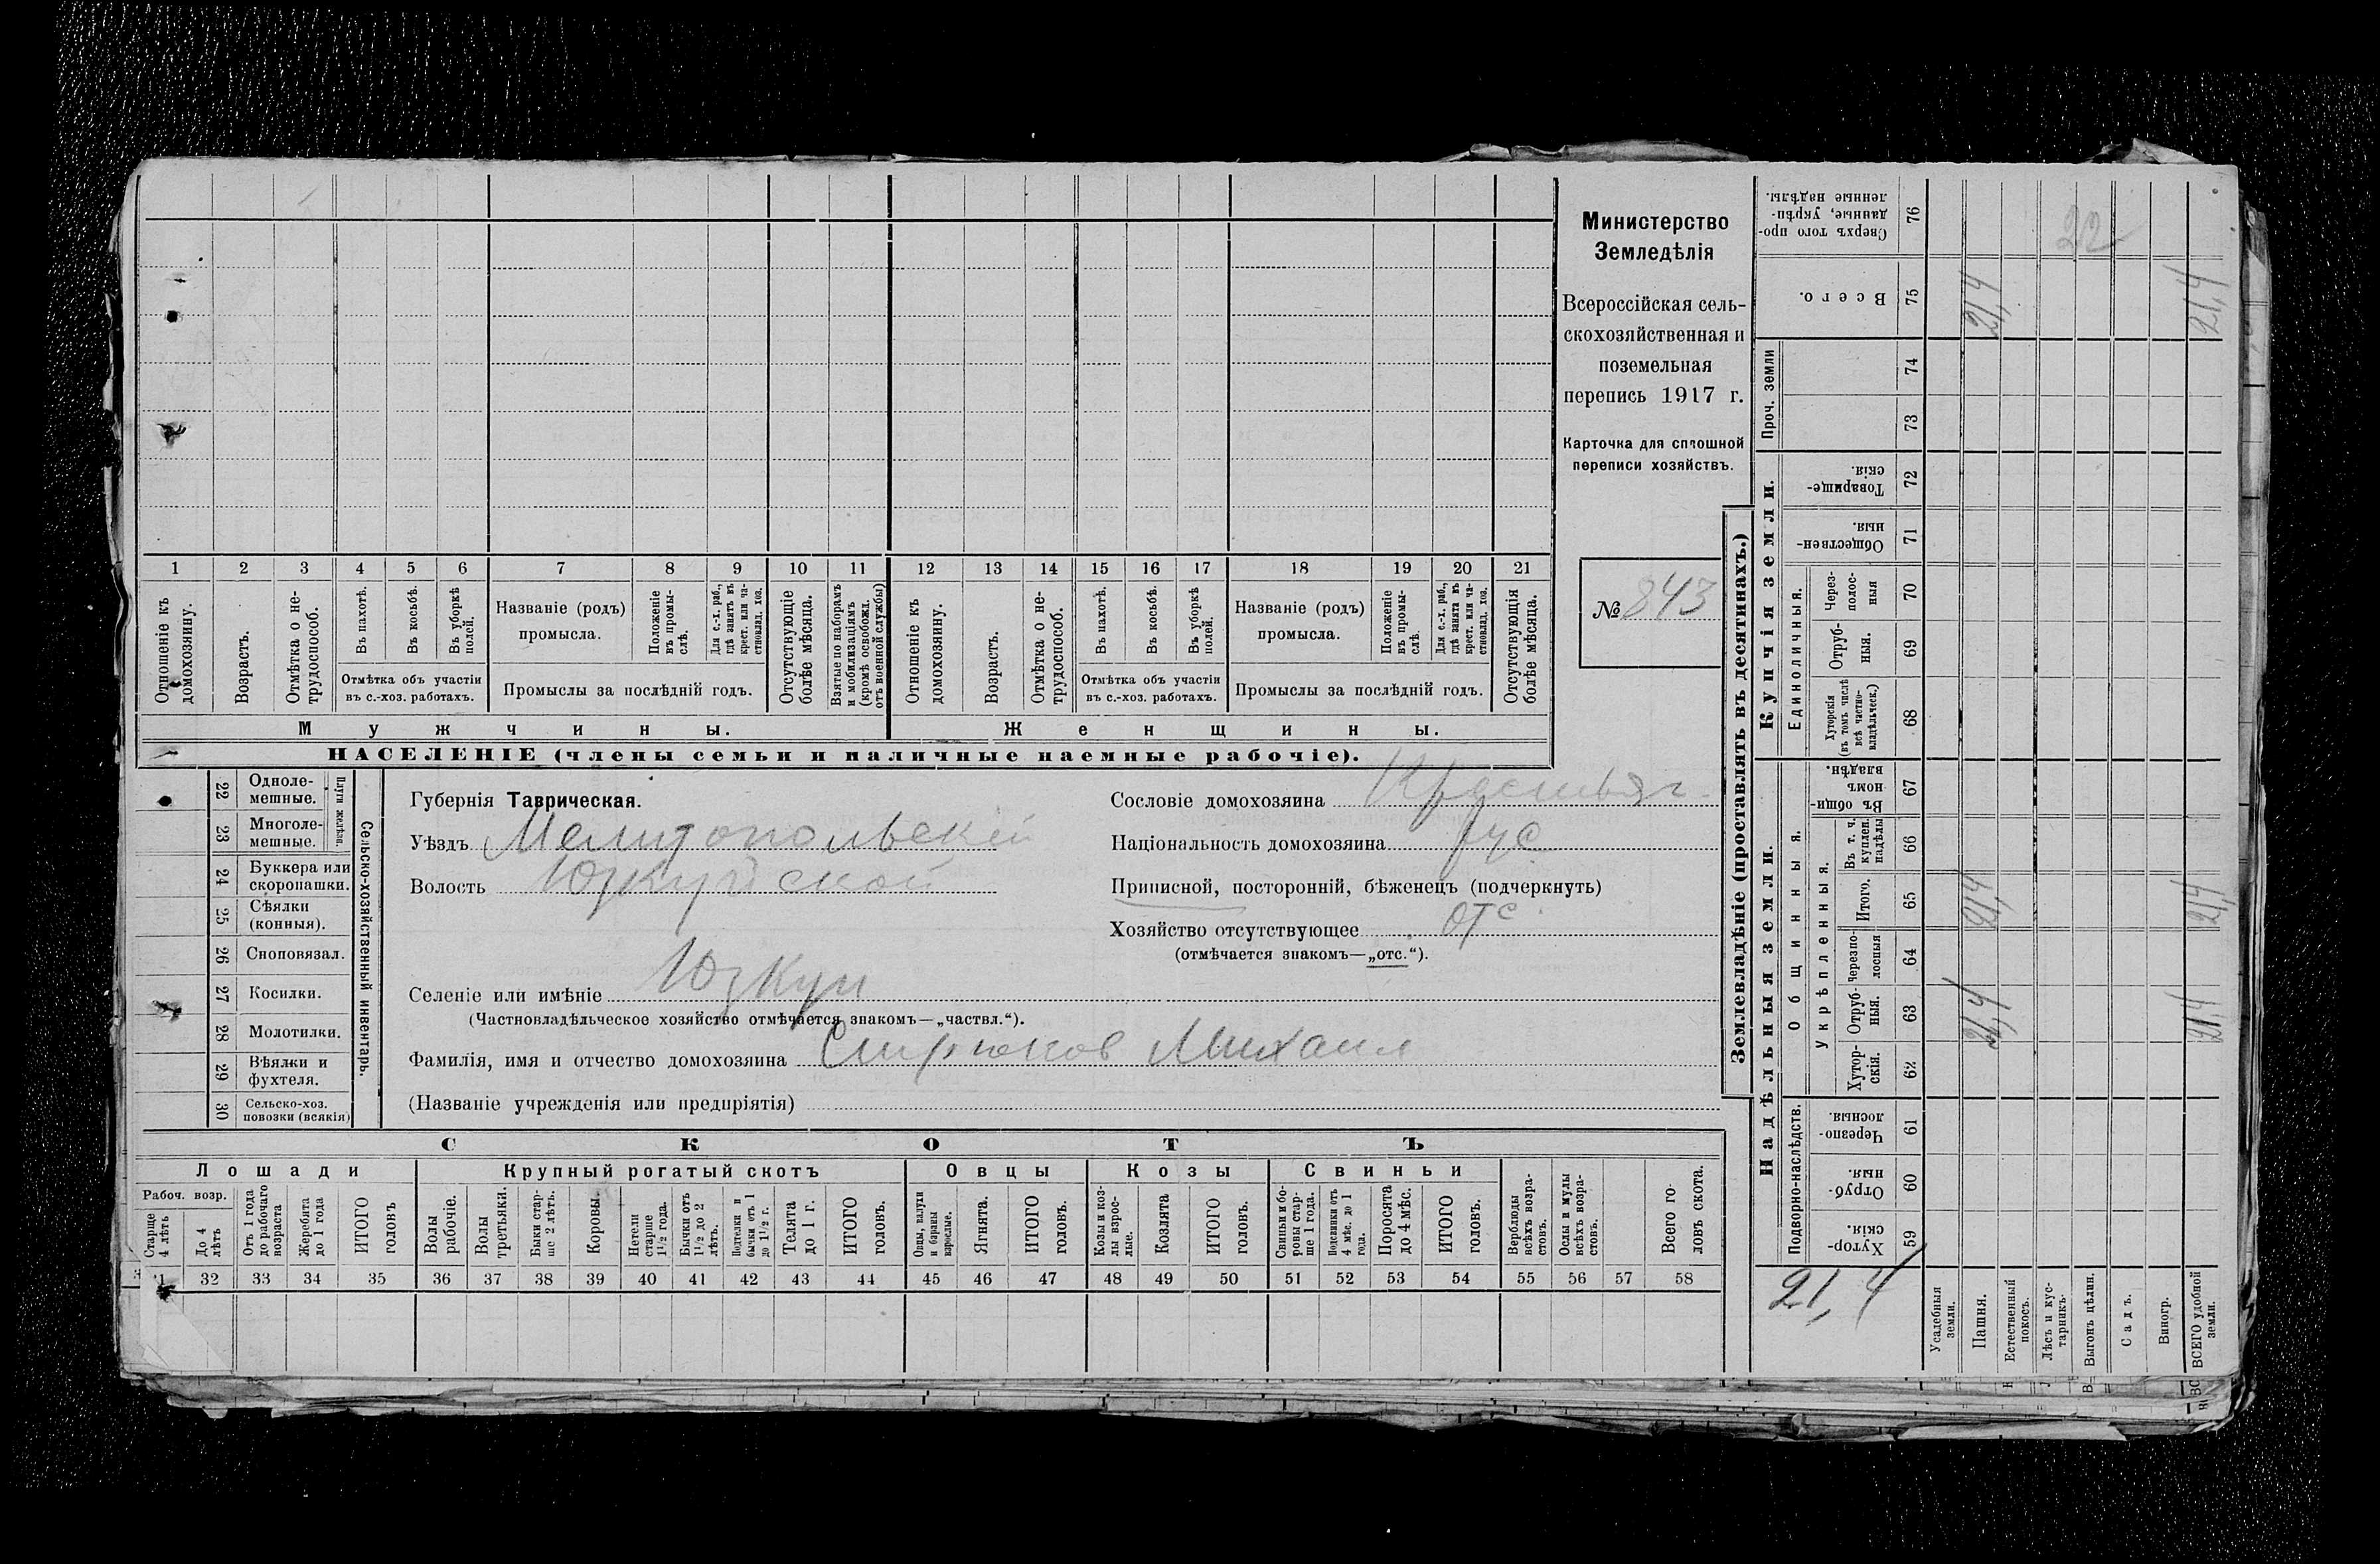 1 2 3 4 5 6 7 8 9 10 11 12 13 14 15 16 17 18 19 20 21
Отношеніе къ домохозяину.
Возрастъ.
Отмѣтка о не-
трудоспособ.
Въ пахотѣ.
Въ косьбѣ.
Въ уборкѣ
полей.
Отмѣтка объ участіи
въ с.-хоз. работахъ.
Названіе (родъ)
промысла.
Положеніе
въ промы-
слѣ.
Для с.-х. раб.,
гдѣ занятъ въ
крест. или ча-
стновлад. хоз.
Промыслы за послѣдній годъ.
Отсутствующіе
болѣе мѣсяца.
Взятые по наборамъ
и мобилизаціямъ
(кромѣ освобожд.
отъ военной службы)
Отношеніе къ
домохозяину.
Возрастъ.
Отмѣтка о не-
трудоспособ.
Въ пахотѣ.
Въ косьбѣ.
Въ уборкѣ
полей.
Отмѣтка объ участіи
въ с.-хоз. работахъ.
Названіе (родъ)
промысла.
Положеніе
въ промы-
слѣ.
Для с.-х. раб.,
гдѣ занята въ
крест. или ча-
стновлад. хоз.
Промыслы за послѣдній годъ.
Отсутствующія
болѣе мѣсяца.
Мужчины.
Женщины.
НАСЕЛЕНІЕ (члены семьи и наличные наемные рабочіе).
Министерство
Земледѣлія
Всероссійская сель-
скохозяйственная и
поземельная
перепись 1917 г.
Карточка для сплошной
переписи хозяйствъ.
№ 843
22 Одноле-
мешные.
23 Многоле-
мешные.
Плуги желѣзн.
24 Буккера или
скоропашки.
25 Сѣялки
(конныя).
26 Сноповязал.
27 Косилки.
28 Молотилки.
29 Вѣялки и
фухтеля.
30 Сельско-хоз.
повозки (всякія)
Сельско-хозяйственный инвентарь.
Губернія Таврическая.
Уѣздъ Мелитопольскій
Волость Юзкуйской
Селеніе или имѣніе Юзкуи
(Частновладѣльческое хозяйство отмѣчается знакомъ—„частвл.“).
Фамилія, имя и отчество домохозяина Михаил
(Названіе учрежденія или предпріятія)
Сословіе домохозяина Крестьян
Національность домохозяина рус
Приписной, посторонній, бѣженецъ (подчеркнуть)
Хозяйство отсутствующее отс
(отмѣчается знакомъ—„отс.“).
СКОТЪ
Лошади
Рабоч. возр.
Старше
4 лѣтъ
До 4
лѣтъ
Отъ 1 года
до рабочаго
возраста
Жеребята
до 1 года
ИТОГО
головъ
Крупный рогатый скотъ
Волы
рабочіе.
Волы
третьяки.
Быки стар-
ше 2 лѣтъ.
Коровы.
Нетели
старше
1½ года.
Бычки отъ
1½ до 2
лѣтъ.
Подтелки и
бычки отъ 1
до 1½ г.
Телята
до 1 г.
ИТОГО
головъ.
Овцы
Овцы, валухи
и бараны
взрослые.
Ягнята.
ИТОГО
головъ.
Козы
Козы и коз-
лы взрос-
лые.
Козлята
ИТОГО
головъ.
Свиньи
Свиньи и бо-
ровы стар-
ше 1 года.
Подсвинки отъ
4 мѣс. до 1
года.
Поросята
до 4 мѣс.
ИТОГО
головъ.
Верблюды
всѣхъ возра-
стовъ.
Ослы и мулы
всѣхъ возра-
стовъ.
Всего го-
ловъ скота.
32 33 34 35 36 37 38 39 40 41 42 43 44 45 46 47 48 49 50 51 52 53 54 55 56 57 58
Землевладѣніе (проставлять въ десятинахъ.)
Надѣльныя земли.
Подворно-наслѣдств.
Хутор-
скія. 59
Отруб-
ныя. 60
Черезпо-
лосныя. 61
Общинныя.
Укрѣпленныя.
Хутор-
скія. 62
Отруб-
ныя. 63
Черезпо-
лосныя 64
Итого. 65
Въ т. ч.
куплен.
надѣлы 66
Въ общин-
номъ
владѣн. 67
Купчія земли.
Единоличныя.
Хуторскія
(въ томъ числѣ
всѣ частно-
владѣльческ.) 68
Отруб-
ныя. 69
Через-
полос-
ныя 70
Обществен-
ныя. 71
Товарище-
скія. 72
Проч. земли
73 74
Всего. 75
Сверхъ того про-
данные, укрѣп-
ленные надѣлы. 76
21,4
Усадебныя
земли.
Пашня. 21,4 21,4 21,4
Естественный
покосъ.
Лѣсъ и кус-
тарникъ.
Выгонъ цѣлин. 22
Садъ.
Виногр.
ВСЕГО удобной
земли. 21,4 21,4 21,4